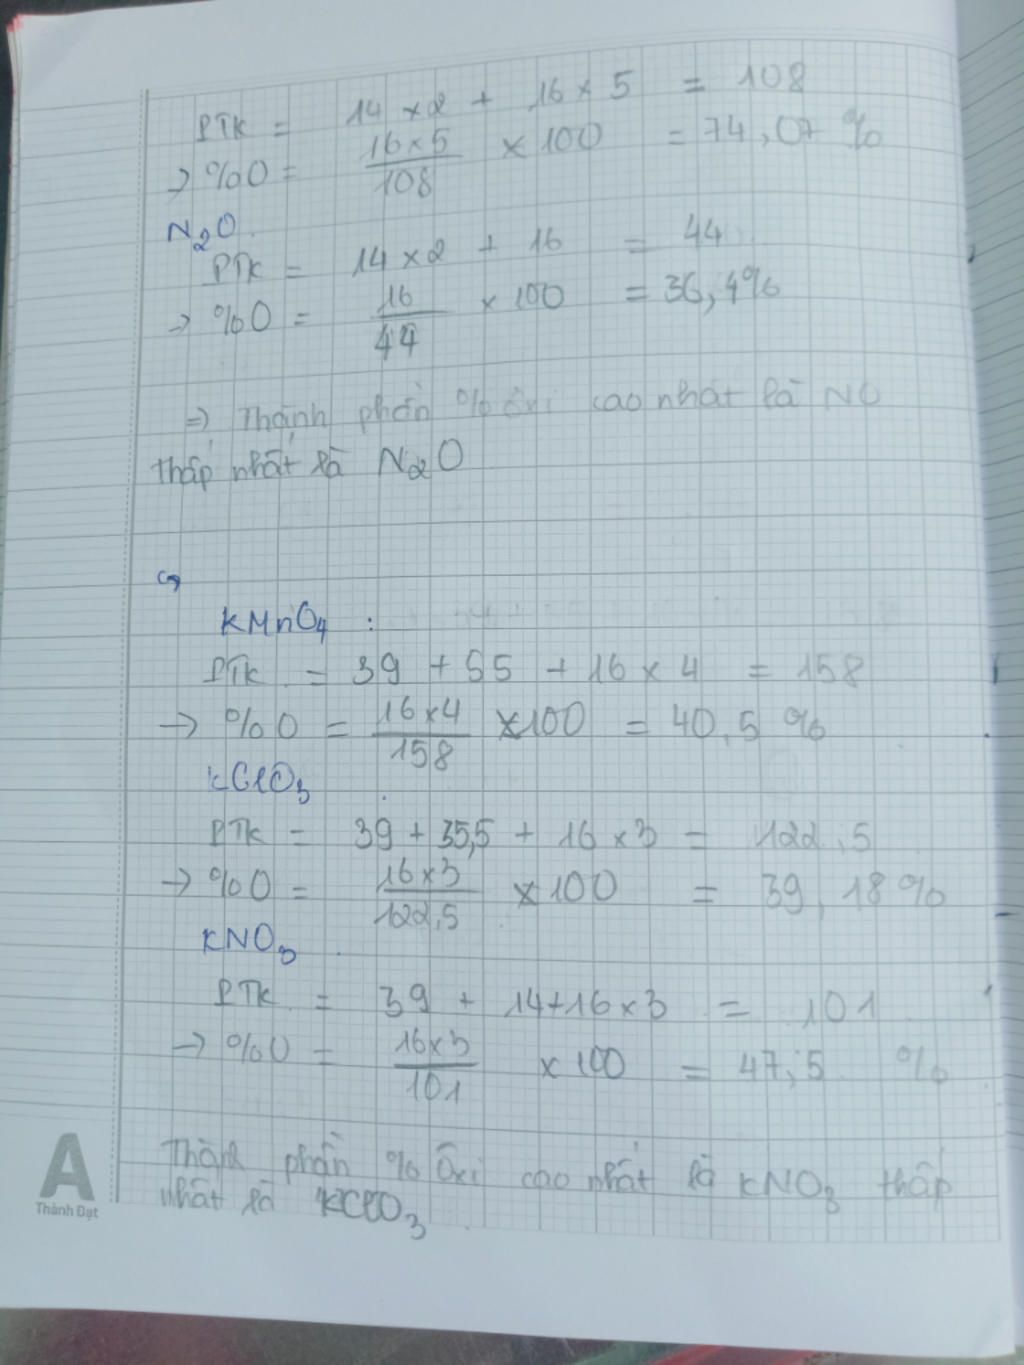 PTK = 14 × 2 + 16 × 5 = 108
→ %O = 16×5/108 × 100 = 74,07 %
N2O.
PTK = 14 × 2 + 16 = 44
→ %O = 16/44 × 100 = 36,4%
=) Thành phần % ôxi cao nhất là NO
thấp nhất là N2O
c,
KMnO4 :
PTK = 39 + 55 + 16 × 4 = 158
→ %O = 16×4/158 × 100 = 40,5 %
KClO3
PTK = 39 + 35,5 + 16 × 3 = 122,5
→ %O = 16×3/122,5 × 100 = 39,18 %
KNO3
PTK = 39 + 14+16×3 = 101
→ %O = 16×3/101 × 100 = 47,5 %
Thành phần % ôxi cao nhất là KNO3 thấp
nhất là KClO3.
A
Thành Đạt